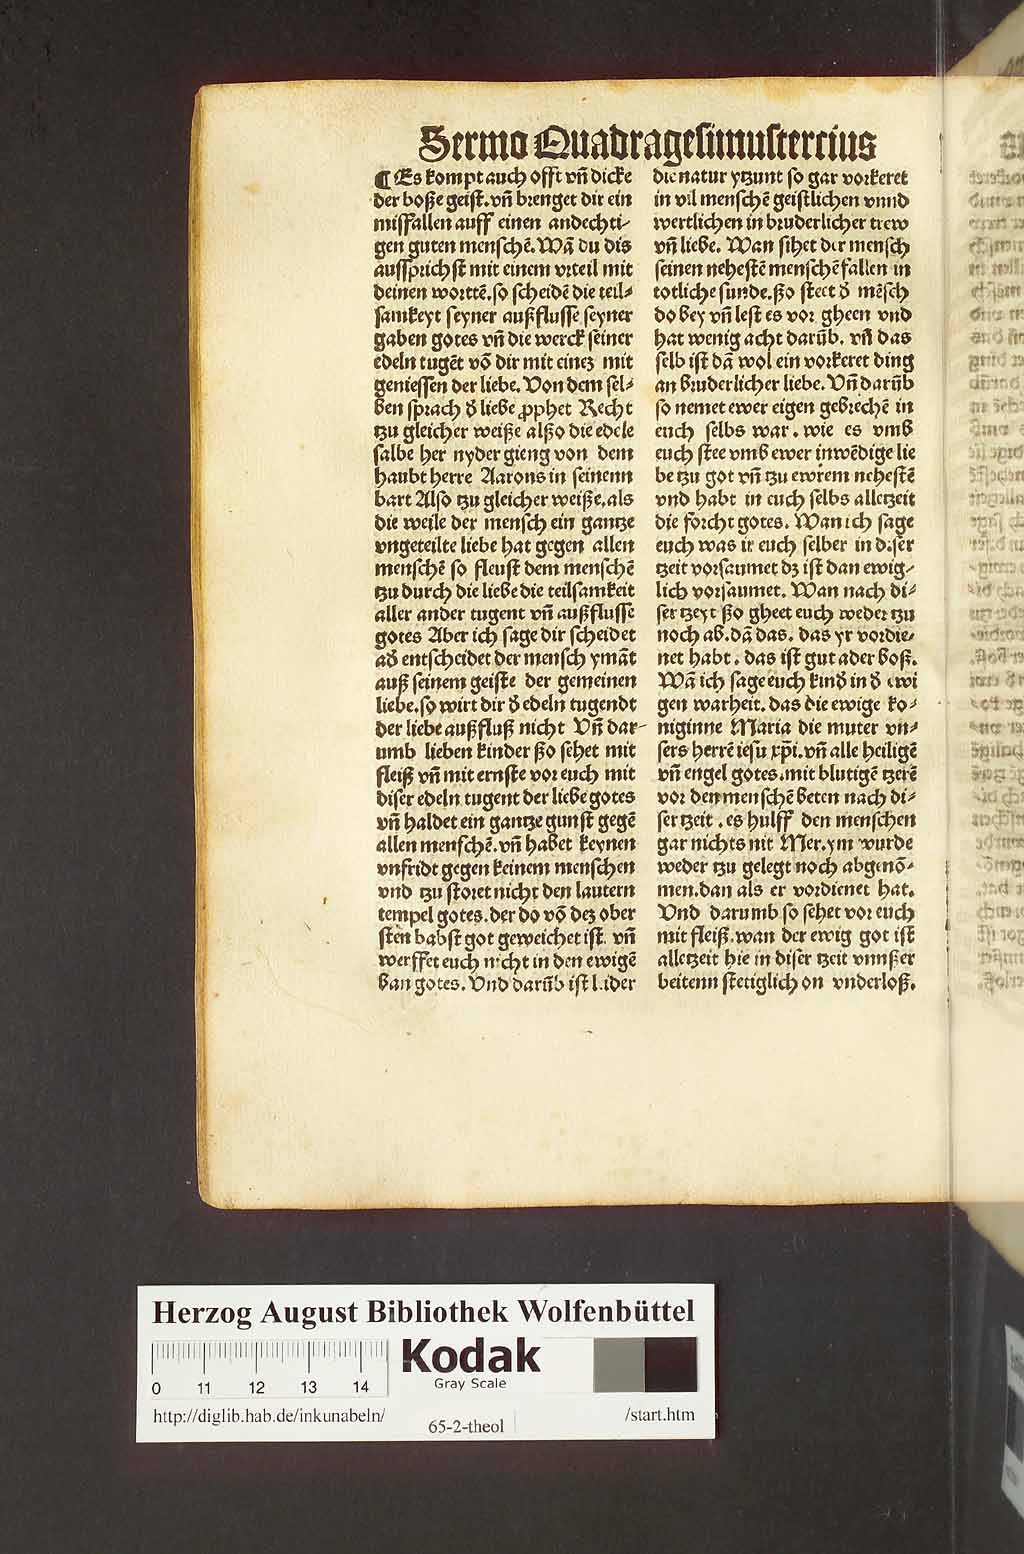 Sermo Quadragesimustercius
¶ Es kompt auch offt vn̄ dicke
der boße geist. vn̄ brenget dir ein
missfallen auff einen andechti-
gen guten menschē. Wā du dis
aussprichst mit einem vrteil mit
deinen worttē. so scheidē die teil⸗
samkeyt seyner außflusse seyner
gaben gotes vn̄ die werck seiner
edeln tugēt vō dir mit eineꝫ mit
geniessen der liebe. Von dem sel⸗
ben sprach d̕ liebe ꝓphet Recht
tzu gleicher weiße alßo die edele
salbe her nyder gieng von dem
haubt herre Aarons in seinenn
bart Also tzu gleicher weiße. als
die weile der mensch ein gantze
vngeteilte liebe hat gegen allen
menschē so fleust dem menschē
tzu durch die liebe die teilsamkeit
aller ander tugent vn̄ außflusse
gotes Aber ich sage dir scheidet
ad̕ entscheidet der mensch ymāt
auß seinem geiste der gemeinen
liebe. so wirt dir d̕ edeln tugendt
der liebe außfluß nicht Vn̄ dar-
umb lieben kinder ßo sehet mit
fleiß vn̄ mit ernste vor euch mit
diser edeln tugent der liebe gotes
vn̄ haldet ein gantze gunst gegē
allen menschē. vn̄ habet keynen
vnfridt gegen keinem menschen
vnd tzu storet nicht den lautern
tempel gotes. der do vō deꝫ ober
sten babst got geweichet ist. vn̄
werffet euch nicht in den ewigē
ban gotes. Vnd darūb ist leider
die natur ytzunt so gar vorkeret
in vil menschē geistlichen vnnd
wertlichen in bruderlicher trew
vn̄ liebe. Wan sihet der mensch
seinen nehestē menschē fallen in
totliche sunde. ßo steet d̕ mēsch
do bey vn̄ lest es vor gheen vnd
hat wenig acht darūb. vn̄ das
selb ist dā wol ein vorkeret ding
an bruderlicher liebe. Vn̄ darūb
so nemet ewer eigen gebrechē in
euch selbs war. wie es vmb
euch stee vmb ewer inwēdige lie
be tzu got vn̄ tzu ewrem nehestē
vnd habt in euch selbs alletzeit
die forcht gotes. Wan ich sage
euch was ir euch selber in diser
tzeit vorsaumet dꝫ ist dan ewig-
lich vorsaumet. Wan nach di⸗
ser tzeyt ßo gheet euch weder tzu
noch ab. dā das. das yr vordie-
net habt. das ist gut ader boß.
Wā ich sage euch kind̕ in d̕ ewi
gen warheit. das die ewige ko⸗
niginne Maria die muter vn⸗
sers herrē iesu xp̄i. vn̄ alle heiligē
vn̄ engel gotes. mit blutigē tzerē
vor den menschē beten nach di⸗
ser tzeit. es hulff den menschen
gar nichts nit Mer. ym wurde
weder tzu gelegt noch abgenō⸗
men. dan als er vordienet hat.
Vnd darumb so sehet vor euch
mit fleiß. wan der ewig got ist
alletzeit hie in diser tzeit vnnßer
beitenn stetiglich on vnderloß.
Herzog August Bibliothek Wolfenbüttel
0 11 12 13 14
Kodak
Gray Scale
http://diglib.hab.de/inkunabeln/
65-2-theol
/start.htm